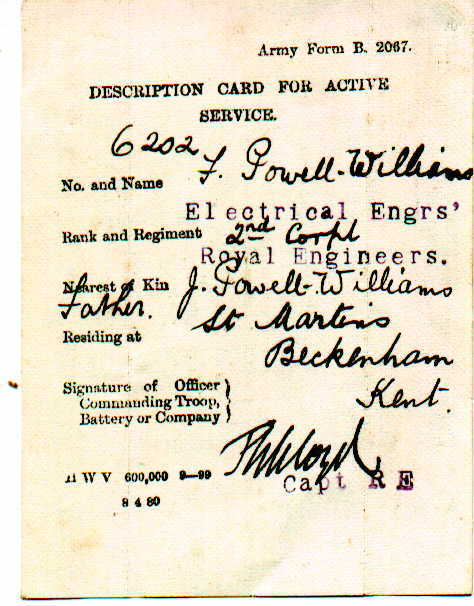 Army Form B. 2067.
DESCRIPTION CARD FOR ACTIVE
SERVICE.
6202
No. and Name F. Powell-Williams
Electrical Engrs'
Rank and Regiment 2nd Corpl
Royal Engineers.
Nearest of Kin J. Powell-Williams
Father.
Residing at St Martins
Beckenham
Kent.
Signature of Officer }
Commanding Troop, }
Battery or Company }
Capt RE
H W V 600,000 9—99
8 4 80